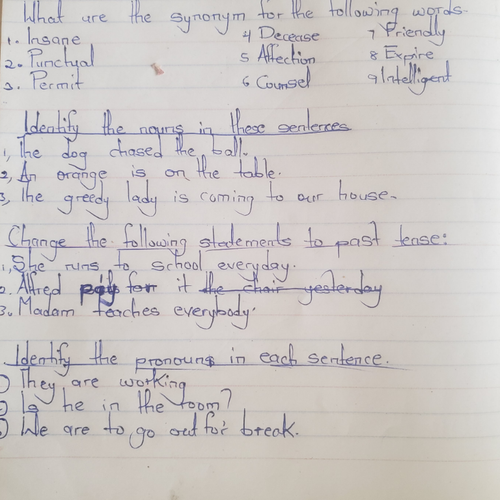 What are the synonym for the following words.
1. Insane 4 Decease 7 Friendly
2. Punctual 5 Affection 8 Expire
3. Permit 6 Counsel 9 Intelligent
Identify the nouns in these sentences
1, The dog chased the ball.
2, An orange is on the table.
3, The greedy lady is coming to our house.
Change the following statements to past tense:
1, She runs to school everyday.
2. Alfred pays for it the chair yesterday
3. Madam teaches everybody.
Identify the pronouns in each sentence.
They are working
Is he in the room?
We are to go out for break.